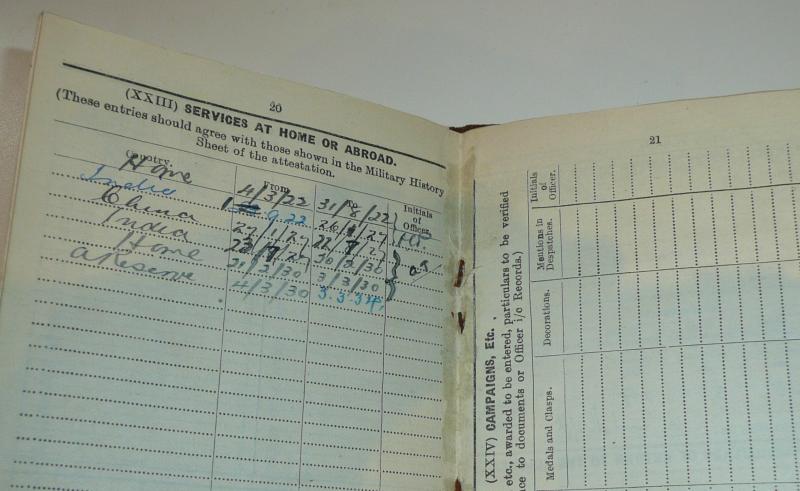 20
(XXIII) SERVICES AT HOME OR ABROAD.
(These entries should agree with those shown in the Military History
Sheet of the attestation.
Country. From To Initials of Officer.
Home 4/3/22 31/8/22
India 1 9.22 26/1/27
China 27/1/27 22/7/27
India 23/7/27 20/2/30
Home 21/2/30 3/3/30
A Reserve 4/3/30 3.3.34.
21
(XXIV) CAMPAIGNS, Etc.
etc., awarded to be entered, particulars to be verified
ce to documents or Officer i/c Records.)
Medals and Clasps. Decorations. Mentions in Despatches. Initials of Officer.